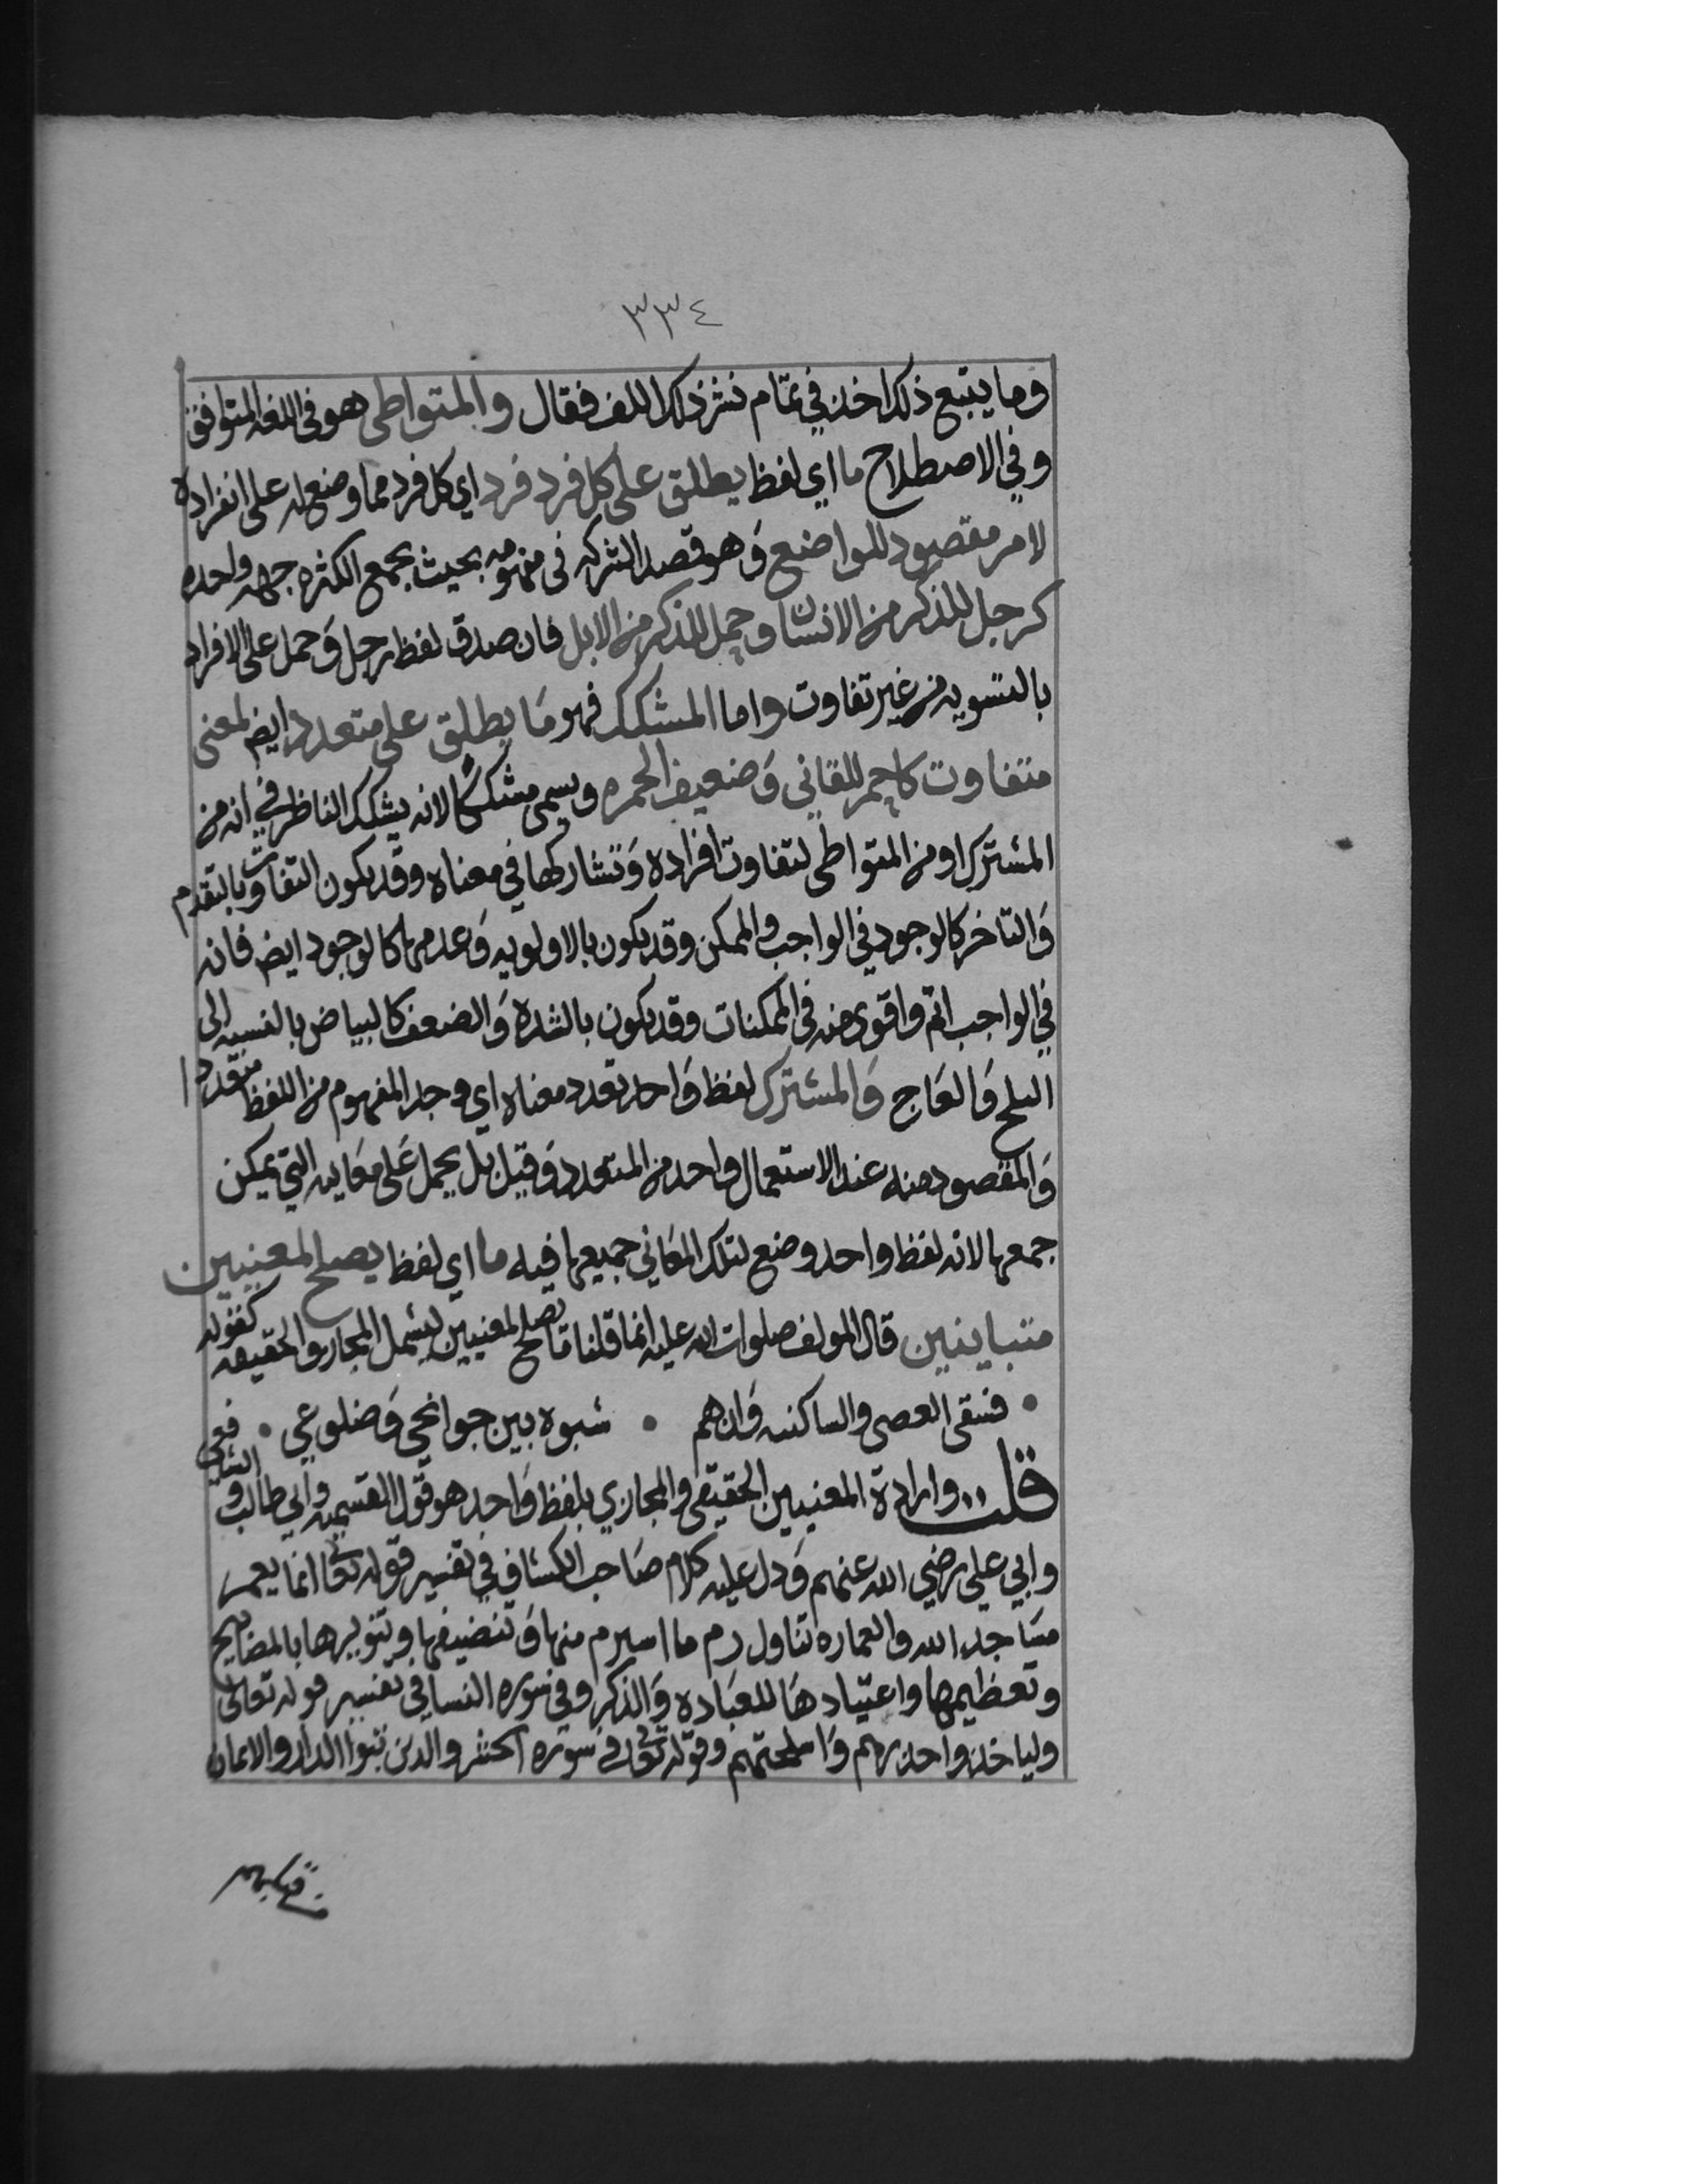 ٣٣٤
وما يتبع ذلك اخذ في تمام نشر ذلك اللف فقال والمتواطي هو في اللغه المتوافق
وفي الاصطلاح ما اي لفظ يطلق على كل فرد فرد اي كل فرد مما وضع له على انفراده
لامر مقصود للواضع وَهو قصد الشركه في مفهومه بحيث يجمع الكثره جهه واحده
كرجل للمذكر من الانسان وجمل للذكر من الابل فان صدق لفظ رجل وَجمل على الافراد
بالتسويه من غير تفاوت واما المشكك فهو مَا يطلق على متعدد ايض لمعنى
متفاوت كاحمر للقاني وَضعيف الحمره ويسمى مشككًا لانه يشكك الناظر في انه من
المشترك او من المتواطي لتفاوت افراده وَتشاركها في معناه وقد يكون التفاوت بالتقدم
وَالتاخر كالوجود في الواجب والممكن وقد يكون بالاولويه وَعدمها كالوجود ايض فانه
في الواجب اتم واقوى منه في الممكنات وقد يكون بالشده وَالضعف كالبياض بالنسبه الى
الثلج وَالعَاج وَالمشترك لفظ وَاحد تعدد معناه اي وجد المفهوم من اللفظ متعددا
وَالمقصود منه عند الاستعمال واحد من المتعدد وَقيل بل يحمل عَلى معَانيه التي يمكن
جمعها لانه لفظ واحد وضع لتلك المعَاني جميعها فيه ما اي لفظ يصلح لمعنيين
متباينين قال المولف صلوات الله عليه انما قلنا مَا يصلح لمعنيين ليشمل المجاز والحقيقه كقوله
• فسقى الغضى والساكنيه وَان هم • شبوه بين جوانحي وَضلوعي •
قلت وارادة المعنيين الحقيقي والمجازي بلفظ وَاحد هو قول القسميه وابي طالب و
وابي علي رضي الله عنهم وَدل عليه كلام صَاحب الكشاف في تفسير قوله تعا انما يعمر
مسَاجد الله والعماره تتناول رم ما استرم منها وَتنضيفها وتنويرها بالمصابيح
وتعظيمها واعتيادهَا للعبَاده وَالذكر وفي سَوره النسا في تفسير قوله تعالى
ولياخذوا حذرهم وَاسلحتهم وقوله تعا في سَوره الحشر والذين تبوا الدار والايمان
من قبلهم